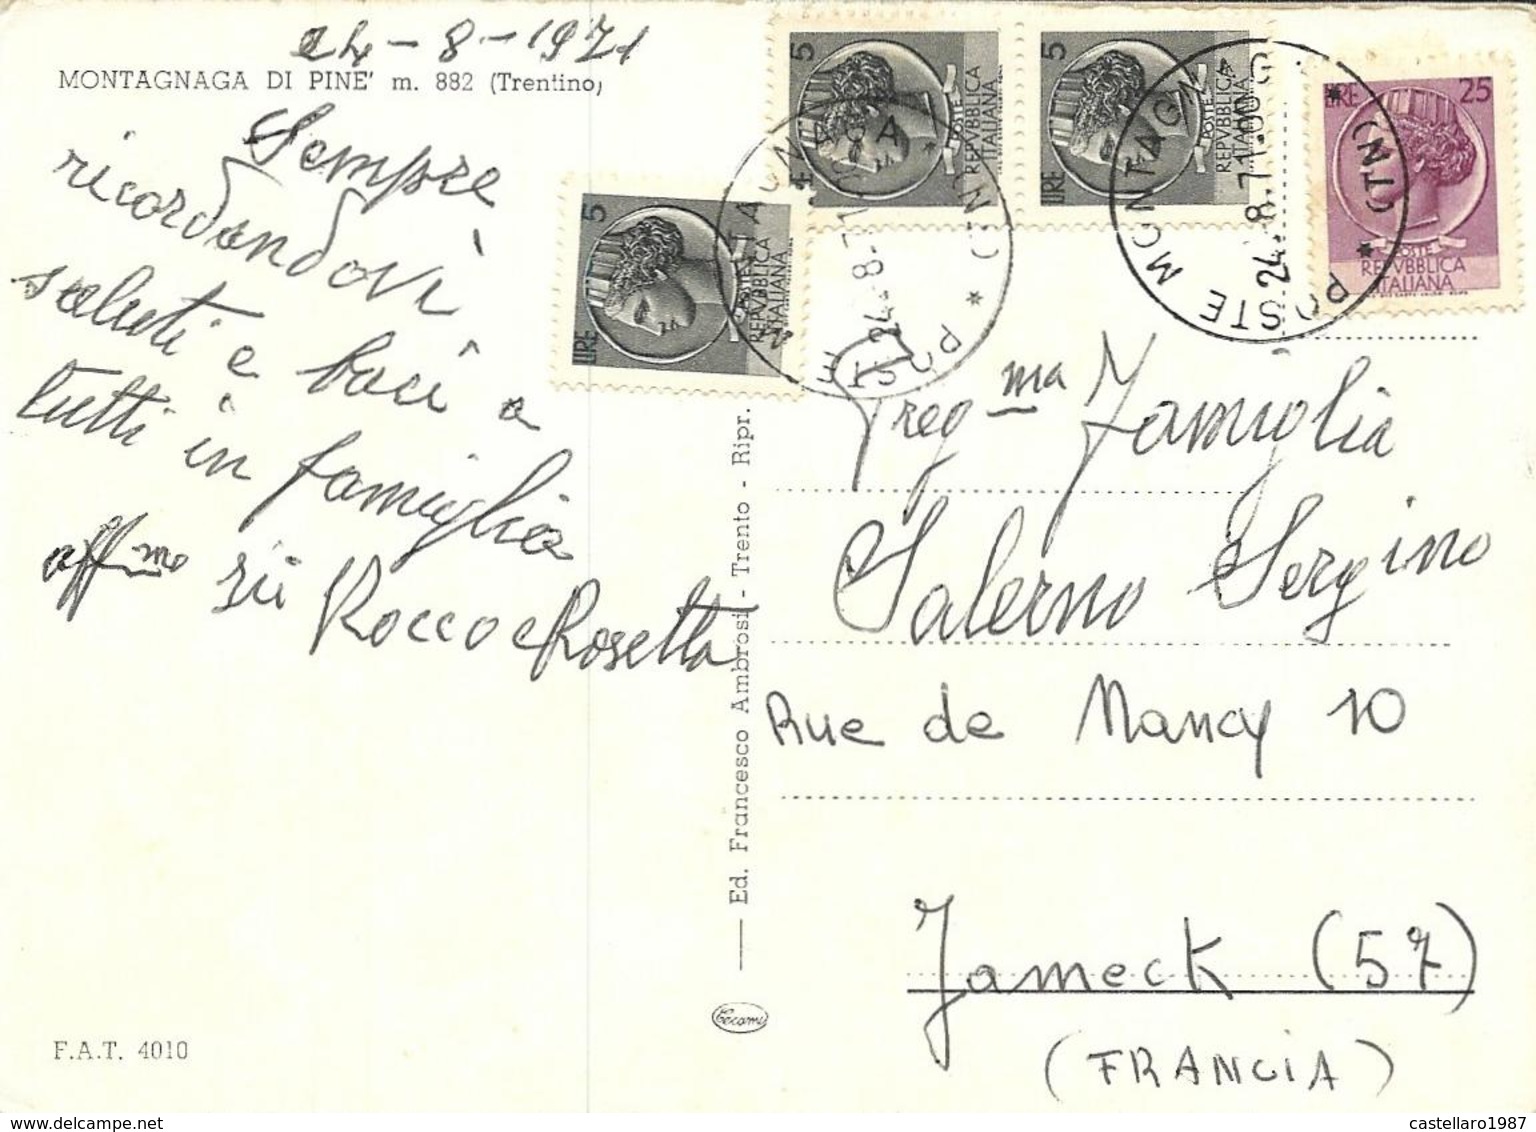 24-8-1971
MONTAGNAGA DI PINE' m. 882 (Trentino)
Sempre
ricordandovi
saluti e baci a
tutti in famiglia
aff.mo zii Rocco e Rosetta
F.A.T. 4010
Ed. Francesco Ambrosi - Trento - Ripr.
Cecami
5
LIRE
POSTE
REPVBBLICA
ITALIANA
5
LIRE
POSTE
REPVBBLICA
ITALIANA
5
LIRE
POSTE
REPVBBLICA
ITALIANA
LIRE 25
POSTE
REPVBBLICA
ITALIANA
POSTE MONTAGNAGA * (TN) *
24.8.71-00
Preg ma Famiglia
Salerno Sergino
Rue de Nancy 10
Jameck (57)
(FRANCIA)
castellaro1987